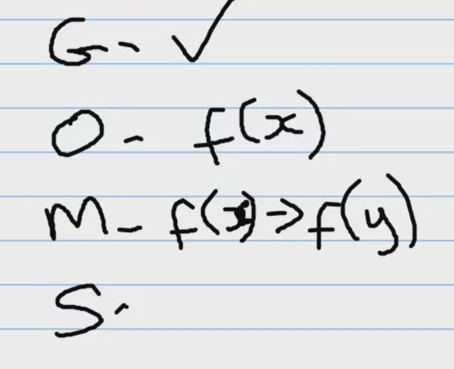 G - √
O - f(x)
M - f(x) → f(y)
S -